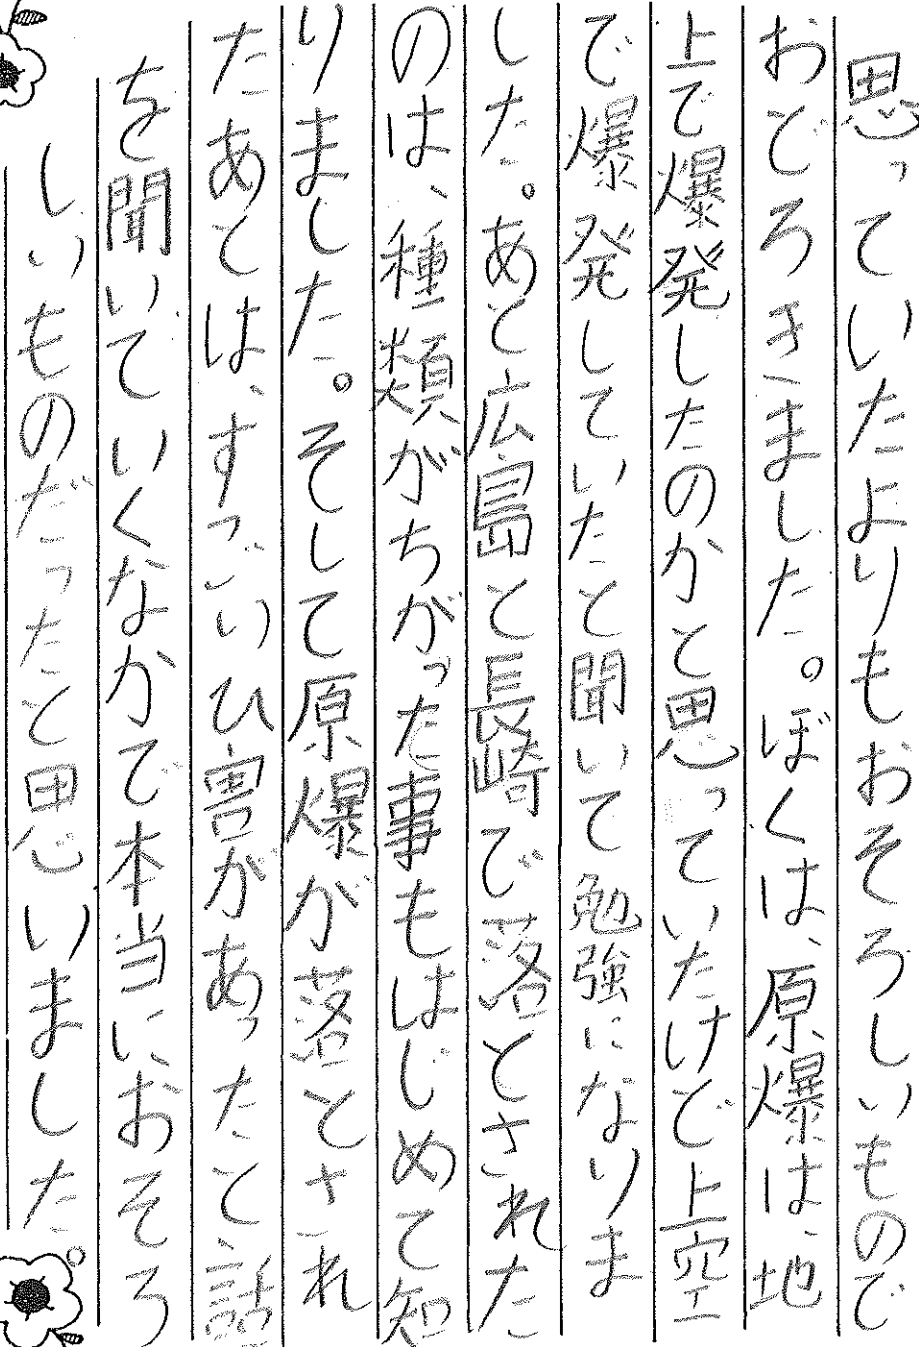 思っていたよりもおそろしいもので
おどろきました。ぼくは、原爆は、地
上で爆発したのかと思っていたけど上空
で爆発していたと聞いて勉強になりま
した。あと広島と長崎で落とされた
のは、種類がちがった事もはじめて知
りました。そして原爆が落とされ
たあとは、すっごいひ害があったと、話
を聞いていくなかで本当に、おそろ
しいものだったと思いました。